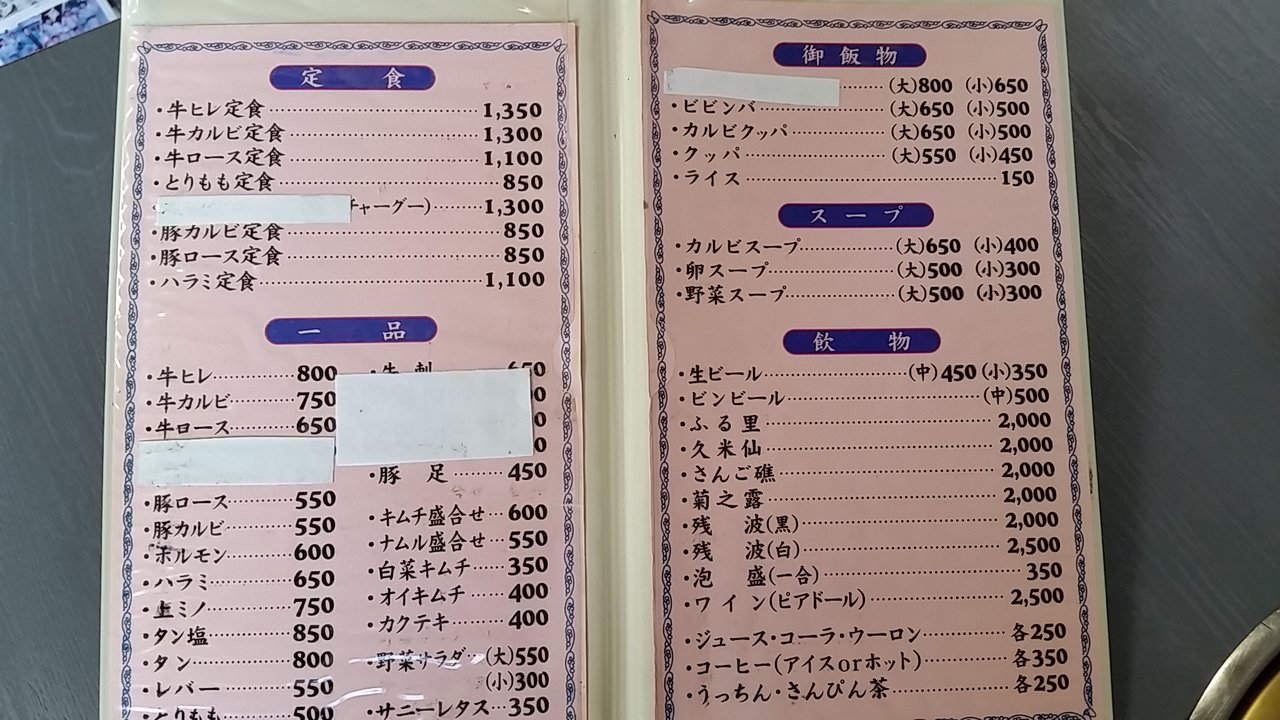 定食
・牛ヒレ定食 1,350
・牛カルビ定食 1,300
・牛ロース定食 1,100
・とりもも定食 850
チャーグー) 1,300
・豚カルビ定食 850
・豚ロース定食 850
・ハラミ定食 1,100
一品
・牛ヒレ 800
・牛カルビ 750
・牛ロース 650
・豚ロース 550
・豚カルビ 550
・ホルモン 600
・ハラミ 650
・上ミノ 750
・タン塩 850
・タン 800
・レバー 550
・とりもも 500
・牛刺 650
・豚足 450
・キムチ盛合せ 600
・ナムル盛合せ 550
・白菜キムチ 350
・オイキムチ 400
・カクテキ 400
・野菜サラダ (大)550
(小)300
・サニーレタス 350
御飯物
(大)800 (小)650
・ビビンバ (大)650 (小)500
・カルビクッパ (大)650 (小)500
・クッパ (大)550 (小)450
・ライス 150
スープ
・カルビスープ (大)650 (小)400
・卵スープ (大)500 (小)300
・野菜スープ (大)500 (小)300
飲物
・生ビール (中)450 (小)350
・ビンビール (中)500
・ふる里 2,000
・久米仙 2,000
・さんご礁 2,000
・菊之露 2,000
・残波(黒) 2,000
・残波(白) 2,500
・泡盛(一合) 350
・ワイン(ピアドール) 2,500
・ジュース・コーラ・ウーロン 各250
・コーヒー(アイスorホット) 各350
・うっちん・さんぴん茶 各250